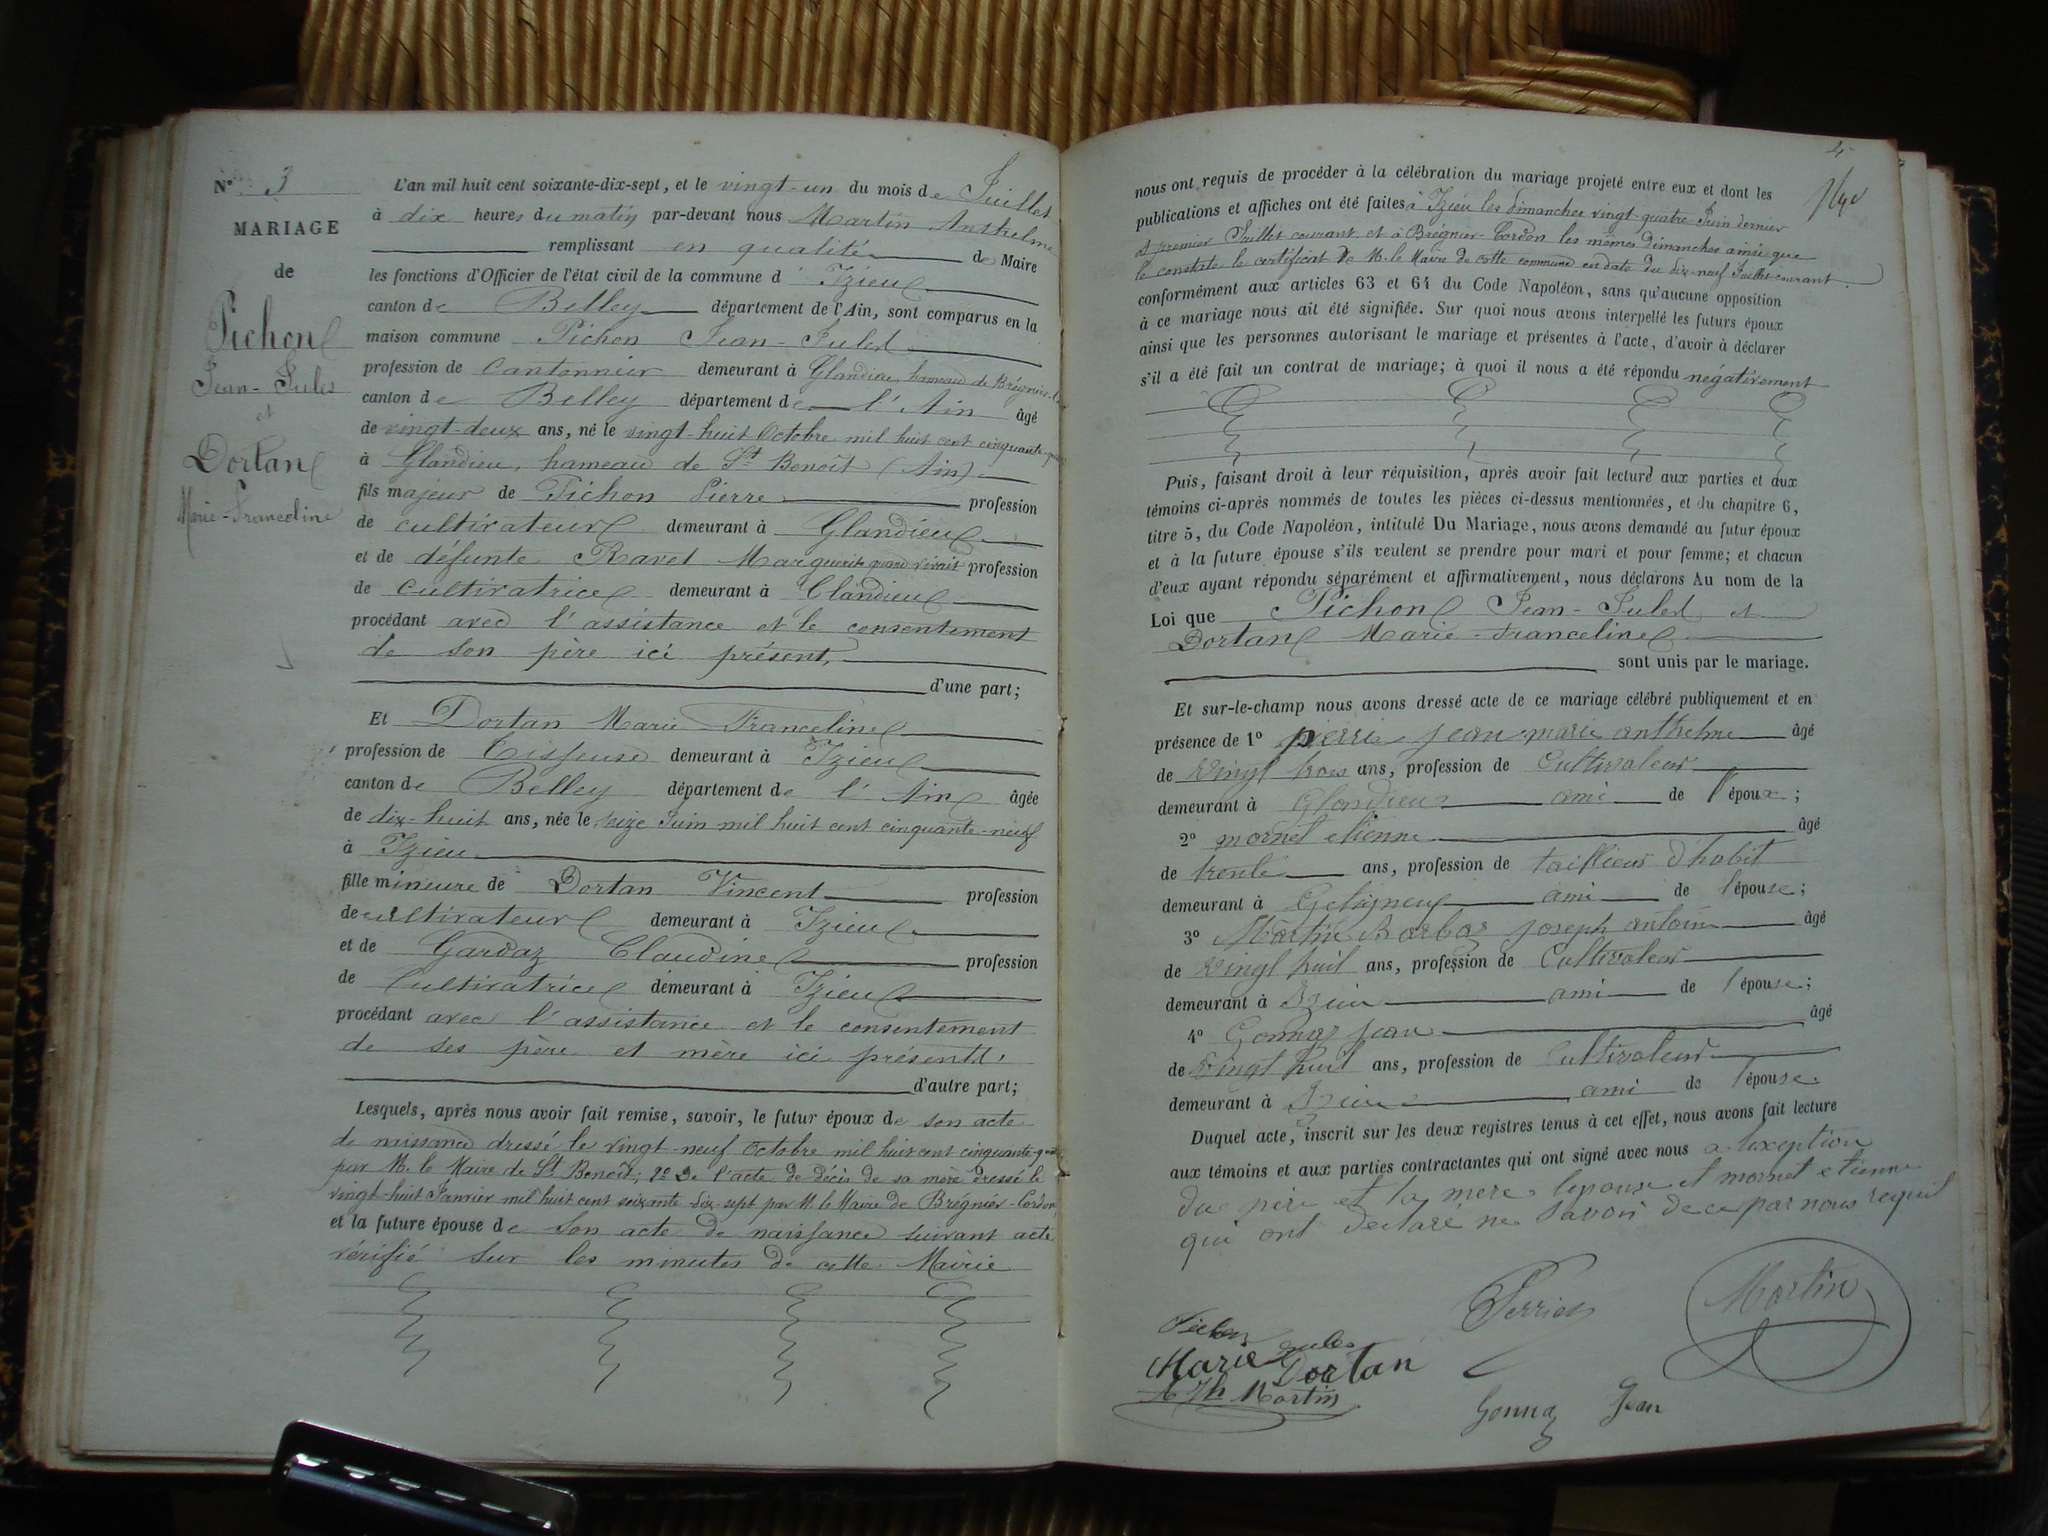 N° 3
MARIAGE
de
Pichon
Jean-Jules
et
Dortan
Marie-Franceline
L'an mil huit cent soixante-dix-sept, et le vingt-un du mois de Juillet
à dix heures du matin par-devant nous Martin Anthelme
remplissant en qualité de Maire
les fonctions d'Officier de l'état civil de la commune d' Izieu
canton de Belley département de l'Ain, sont comparus en la
maison commune Pichon Jean-Jules
profession de Cantonnier demeurant à Glandieu, hameau de Brégnier-
canton de Belley département de l'Ain âgé
de vingt-deux ans, né le vingt-huit Octobre mil huit cent cinquante-
à Glandieu, hameau de St Benoît (Ain)
fils majeur de Pichon Pierre profession
de cultivateur demeurant à Glandieu
et de défunte Ravet Marguerite quand vivait profession
de cultivatrice demeurant à Glandieu
procédant avec l'assistance et le consentement
de son père ici présent,
d'une part;
Et Dortan Marie-Franceline
profession de Tisseuse demeurant à Izieu
canton de Belley département de l'Ain âgée
de dix-huit ans, née le seize Juin mil huit cent cinquante-neuf
à Izieu
fille mineure de Dortan Vincent profession
de cultivateur demeurant à Izieu
et de Gardaz Claudine profession
de Cultivatrice demeurant à Izieu
procédant avec l'assistance et le consentement
de ses père et mère ici présents,
d'autre part;
Lesquels, après nous avoir fait remise, savoir, le futur époux de son acte
de naissance dressé le vingt-neuf octobre mil huit cent cinquante-
par M. le Maire de St Benoît; 2° De l'acte de décès de sa mère dressé le
vingt-huit Janvier mil huit cent soixante-dix-sept par M. le Maire de Brégnier-Cordon
et la future épouse de son acte de naissance suivant acte
vérifié sur les minutes de cette Mairie
4
nous ont requis de procéder à la célébration du mariage projeté entre eux et dont les
publications et affiches ont été faites à Izieu les dimanches vingt-quatre Juin dernier
et premier Juillet courant et à Brégnier-Cordon les mêmes dimanches ainsi que
le constate le certificat de M. le Maire de cette commune en date du dix-neuf Juillet courant.
conformément aux articles 63 et 64 du Code Napoléon, sans qu'aucune opposition
à ce mariage nous ait été signifiée. Sur quoi nous avons interpellé les futurs époux
ainsi que les personnes autorisant le mariage et présentes à l'acte, d'avoir à déclarer
s'il a été fait un contrat de mariage; à quoi il nous a été répondu négativement
Puis, faisant droit à leur réquisition, après avoir fait lecture aux parties et aux
témoins ci-après nommés de toutes les pièces ci-dessus mentionnées, et du chapitre 6,
titre 5, du Code Napoléon, intitulé Du Mariage, nous avons demandé au futur époux
et à la future épouse s'ils veulent se prendre pour mari et pour femme; et chacun
d'eux ayant répondu séparément et affirmativement, nous déclarons Au nom de la
Loi que Pichon Jean-Jules et
Dortan Marie-Franceline
sont unis par le mariage.
Et sur-le-champ nous avons dressé acte de ce mariage célébré publiquement et en
présence de 1° jean marie anthelme âgé
de Vingt trois ans, profession de Cultivateur
demeurant à Glandieu ami de l'époux;
2° mornet etienne âgé
de trente ans, profession de taillieur d'habit
demeurant à ami de l'épouse;
3° Martin Barbaz joseph antoine âgé
de Vingt huit ans, profession de Cultivateur
demeurant à Izieu ami de l'épouse;
4° Gonnaz jean âgé
de Vingt huit ans, profession de Cultivateur
demeurant à Izieu ami de l'épouse.
Duquel acte, inscrit sur les deux registres tenus à cet effet, nous avons fait lecture
aux témoins et aux parties contractantes qui ont signé avec nous a l'exeption
du père et la mere l'epouse et mornet etienne
qui ont declaré ne savoir de ce par nous requit
Pichon Jules
Perrier
Martin
Marie Dortan
Martin
Gonnaz Jean